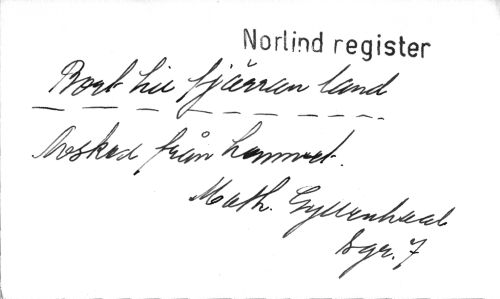 Norlind register
Bort till fjärran land
Avsked från hemmet.
Math. Gyllenhaal
Sgr. 7